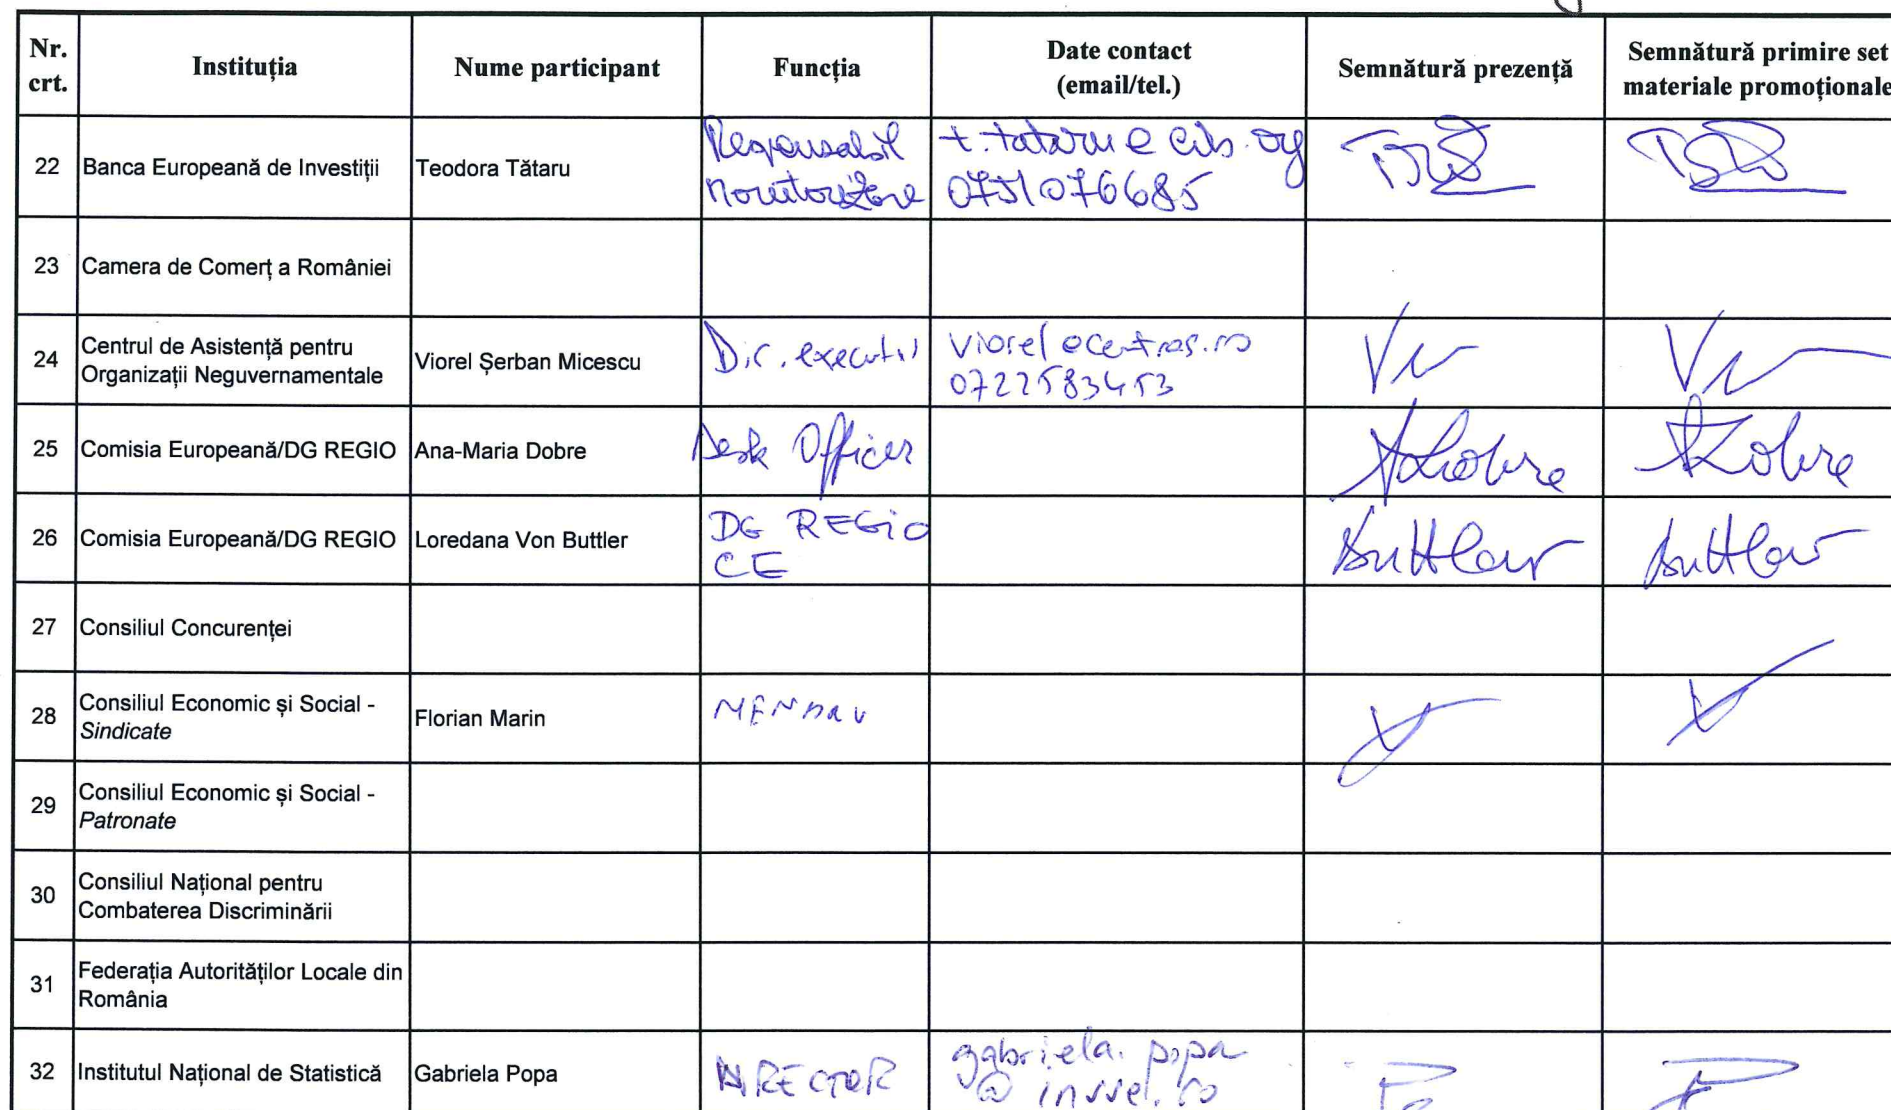 Nr. crt.
Instituția
Nume participant
Funcția
Date contact
(email/tel.)
Semnătură prezență
Semnătură primire set
materiale promoționale
22
Banca Europeană de Investiții
Teodora Tătaru
Responsabil
Monitorizare
t.tataru@eib.org
0751076685
23
Camera de Comerț a României
24
Centrul de Asistență pentru
Organizații Neguvernamentale
Viorel Șerban Micescu
Dir. executiv
viorel@centras.ro
0722583453
25
Comisia Europeană/DG REGIO
Ana-Maria Dobre
Desk Officer
26
Comisia Europeană/DG REGIO
Loredana Von Buttler
DG REGIO
CE
27
Consiliul Concurenței
28
Consiliul Economic și Social -
Sindicate
Florian Marin
29
Consiliul Economic și Social -
Patronate
30
Consiliul Național pentru
Combaterea Discriminării
31
Federația Autorităților Locale din
România
32
Institutul Național de Statistică
Gabriela Popa
DIRECTOR
gabriela.popa